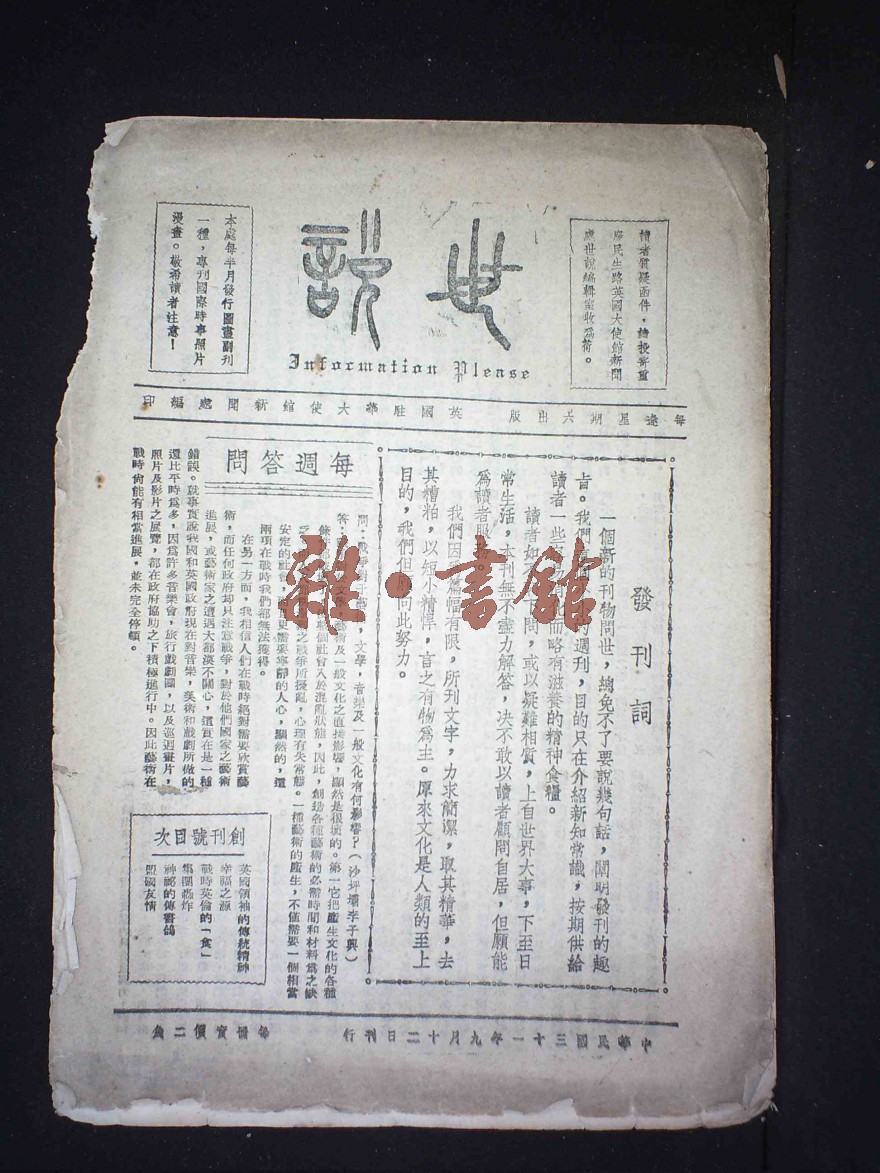 世說
Information Please
讀者質疑函件,請投寄重
慶民生路英國大使館新聞
處世說編輯室收為荷。
本處每半月發行圖畫副刊
一種,專刊國際時事照片
漫畫。敬希讀者注意!
每逢星期六出版 英國駐華大使館新聞處編印
發刊詞
一個新的刊物問世,總免不了要說幾句話,闡明發刊的趣
旨。我們 的週刊,目的只在介紹新知常識,按期供給
讀者一些 而略有滋養的精神食糧。
讀者如 下問,或以疑難相質,上自世界大事,下至日
常生活,本刊無不盡力解答,決不敢以讀者顧問自居,但願能
為讀者服務。
我們因為篇幅有限,所刊文字,力求簡潔,取其精華,去
其糟粕,以短小精悍,言之有物為主。原來文化是人類的至上
目的,我們但願向此努力。
每週答問
問:戰爭對于 ,文學,音樂及一般文化有何影響?(沙坪壩李子興)
答: 文學,藝術及一般文化之直接影響,顯然是很壞的。第一它把產生文化的各種
條 個社會入於混亂狀態,因此,創造各種藝術的必需時間和材料為之缺
乏 之戰爭所擾亂,心理有失常態。一種藝術的產生,不僅需要一個相當
安定的社 更需要寧靜的人心,顯然的,這
兩項在戰時我們都無法獲得。
在另一方面,我相信人們在戰時絕對需要欣賞藝
術,而任何政府却只注意戰爭,對於他們國家之藝術
進展,或藝術家之遭遇大都漠不關心,這實在是一種
錯誤。就事實說我國和英國政府現在對音樂,美術和戲劇所做的
還比平時為多,因為許多音樂會,旅行戲劇團,以及巡迴畫片,
照片及影片之展覽,都在政府協助之下積極進行中。因此藝術在
戰時尚能有相當進展,並未完全停頓。
創刊號目次
英國領袖的傳統精神
幸福之源
戰時英倫的「食」
集團轟炸
神祕的傳書鴿
盟國友情
中華民國三十一年九月十二日刊行 每冊實價二角
雜·書館